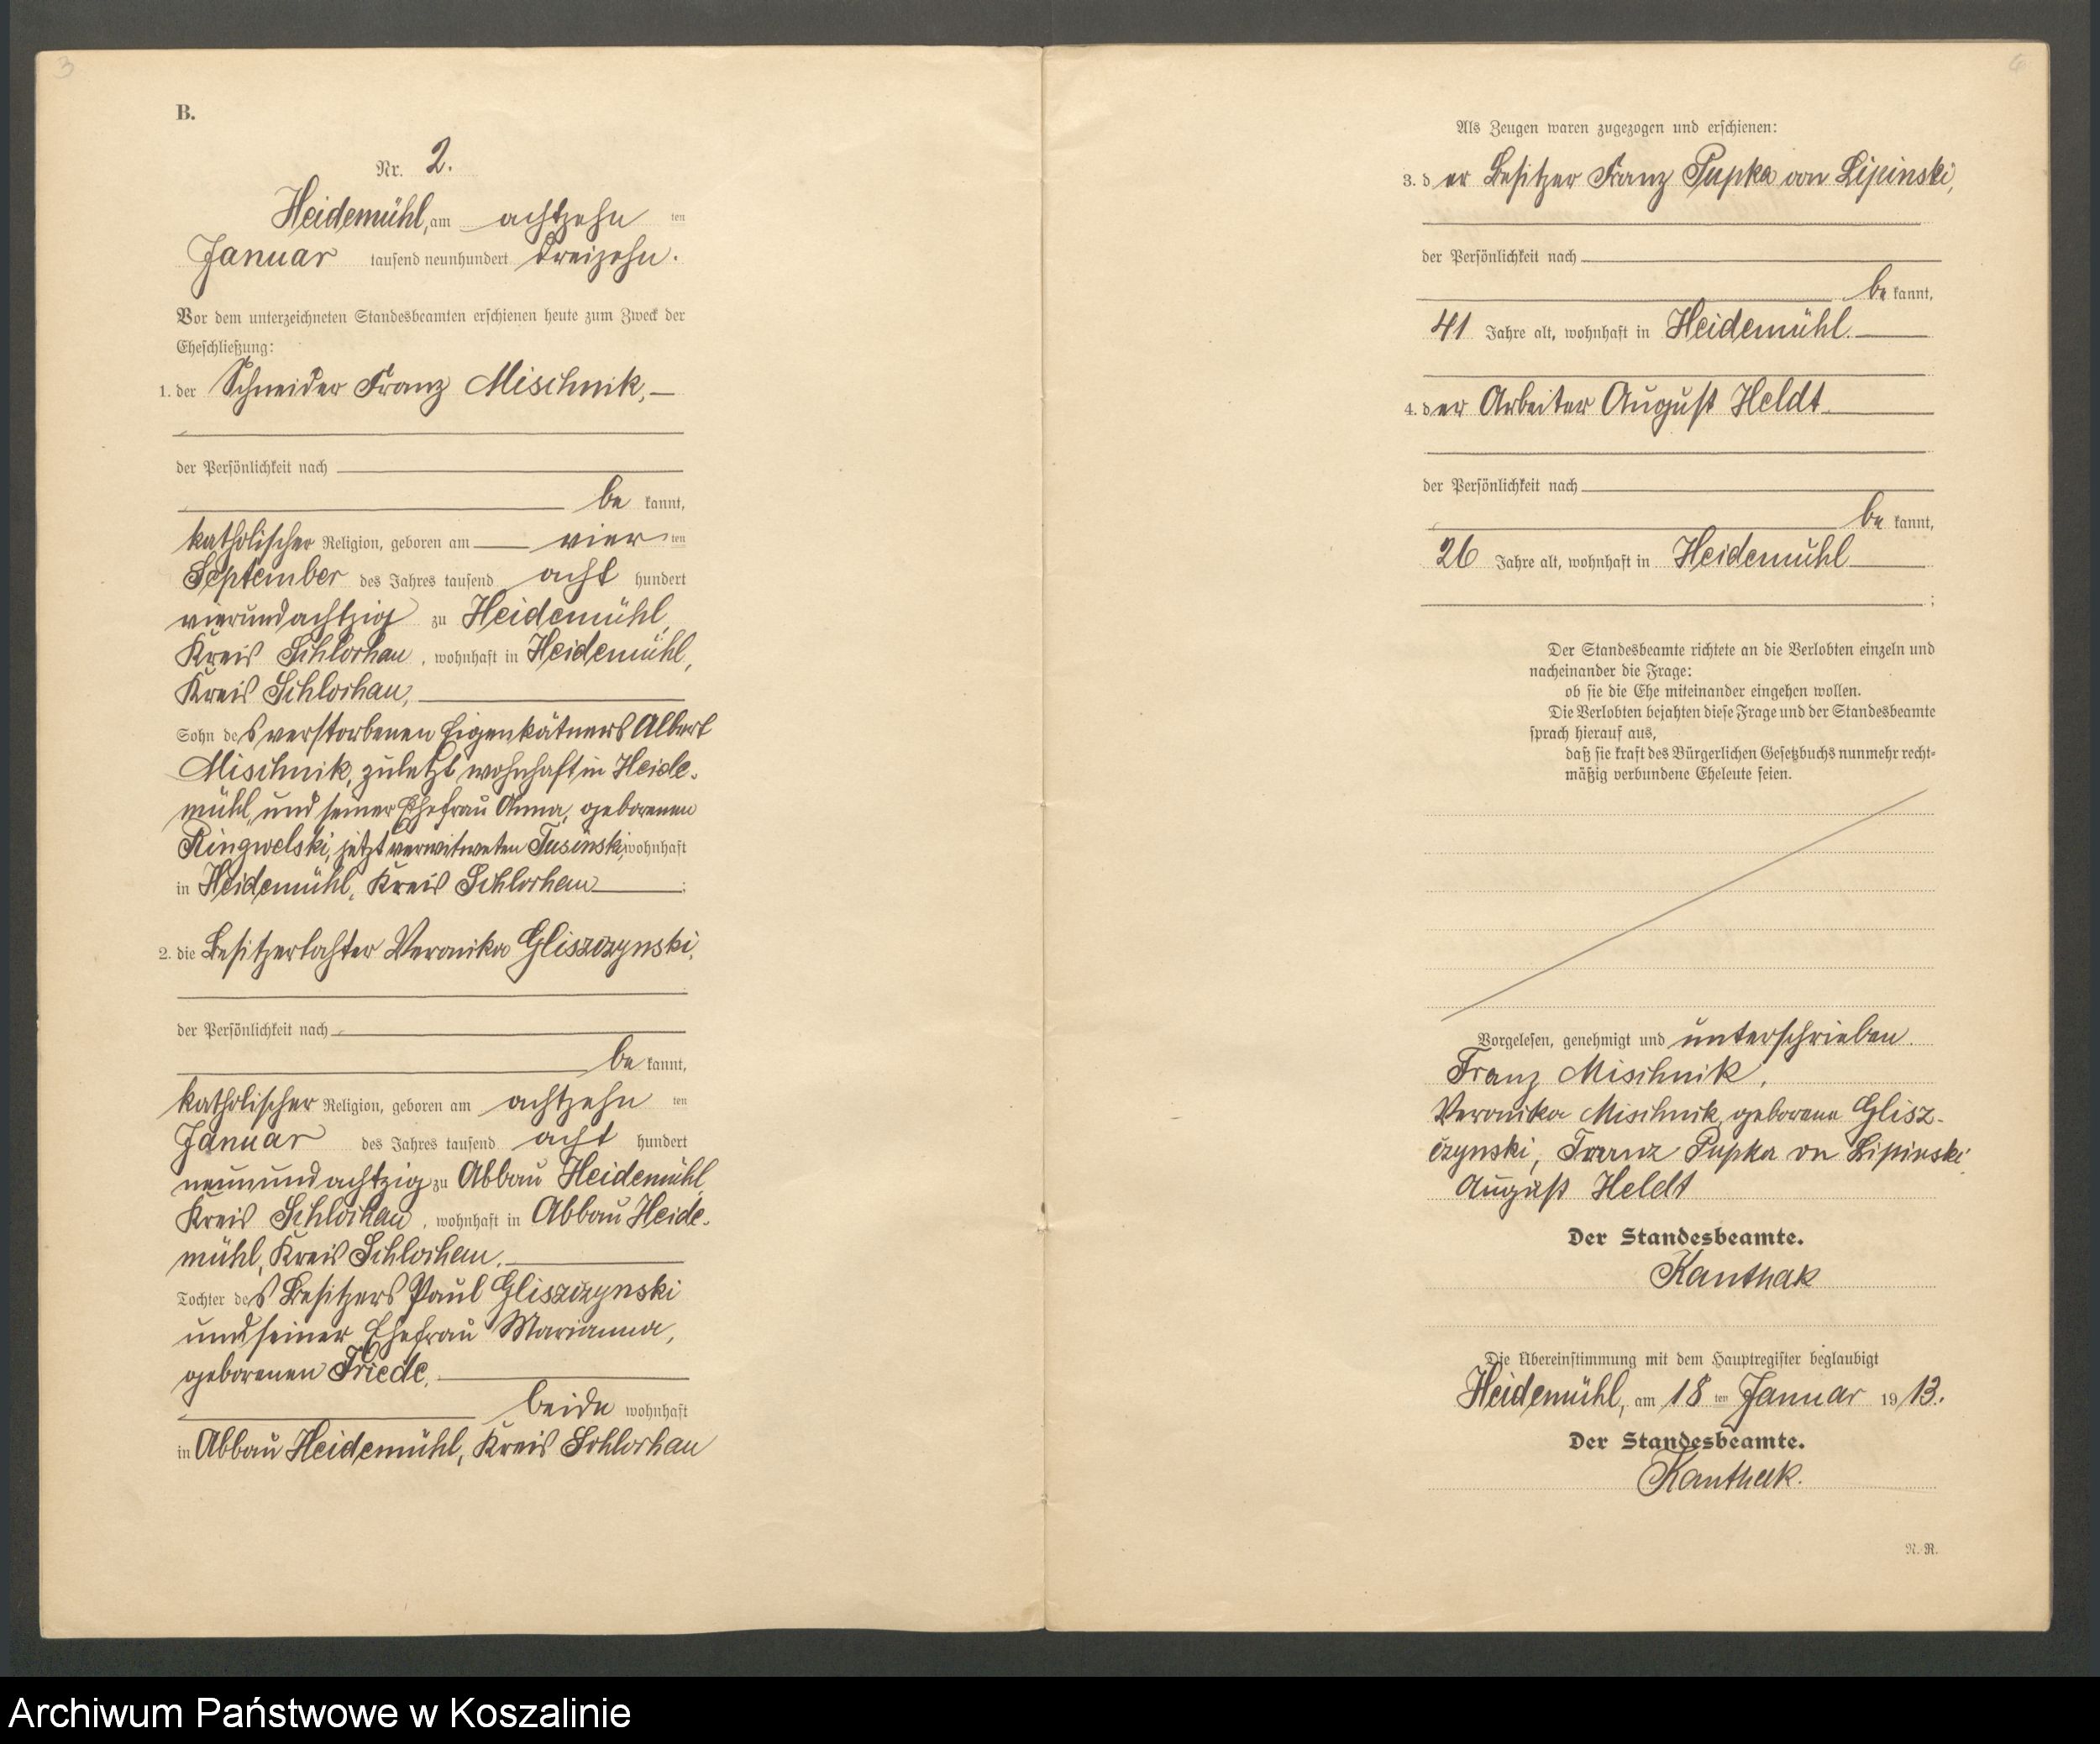 3
B.
Nr. 2.
Heidemühl, am achtzehn ten
Januar tausend neunhundert dreizehn.
Vor dem unterzeichneten Standesbeamten erschienen heute zum Zweck der
Eheschließung:
1. der Schneider Franz Mischnik,
der Persönlichkeit nach
be kannt,
katholischer Religion, geboren am vier ten
September des Jahres tausend acht hundert
vierundachtzig zu Heidemühl,
Kreis Schlochau, wohnhaft in Heidemühl,
Kreis Schlochau,
Sohn des verstorbenen Eigenkätners Albert
Mischnik, zuletzt wohnhaft in Heide-
mühl, und seiner Ehefrau Anna, geborenen
Ringwelski, jetzt verwitweten Tusinski, wohnhaft
in Heidemühl, Kreis Schlochau ;
2. die Besitzertochter Veronika Gliszczynski,
der Persönlichkeit nach
be kannt,
katholischer Religion, geboren am achtzehn ten
Januar des Jahres tausend acht hundert
neunundachtzig zu Abbau Heidemühl,
Kreis Schlochau, wohnhaft in Abbau Heide-
mühl, Kreis Schlochau,
Tochter des Besitzers Paul Gliszczynski
und seiner Ehefrau Marianna,
geborenen Friede,
beide wohnhaft
in Abbau Heidemühl, Kreis Schlochau
Als Zeugen waren zugezogen und erschienen:
3. der Besitzer Franz Pupka von Lipinski,
der Persönlichkeit nach
be kannt,
41 Jahre alt, wohnhaft in Heidemühl.
4. der Arbeiter August Heldt
der Persönlichkeit nach
be kannt,
26 Jahre alt, wohnhaft in Heidemühl
;
Der Standesbeamte richtete an die Verlobten einzeln und
nacheinander die Frage:
ob sie die Ehe miteinander eingehen wollen.
Die Verlobten bejahten diese Frage und der Standesbeamte
sprach hierauf aus,
daß sie kraft des Bürgerlichen Gesetzbuchs nunmehr recht-
mäßig verbundene Eheleute seien.
Vorgelesen, genehmigt und unterschrieben.
Franz Mischnik,
Veronika Mischnik, geborene Glisz-
czynski, Franz Pupka von Lipinski
August Heldt
Der Standesbeamte.
Kanthak
Die Übereinstimmung mit dem Hauptregister beglaubigt
Heidemühl, am 18 ten Januar 1913.
Der Standesbeamte.
Kanthak.
N. R.
Archiwum Państwowe w Koszalinie